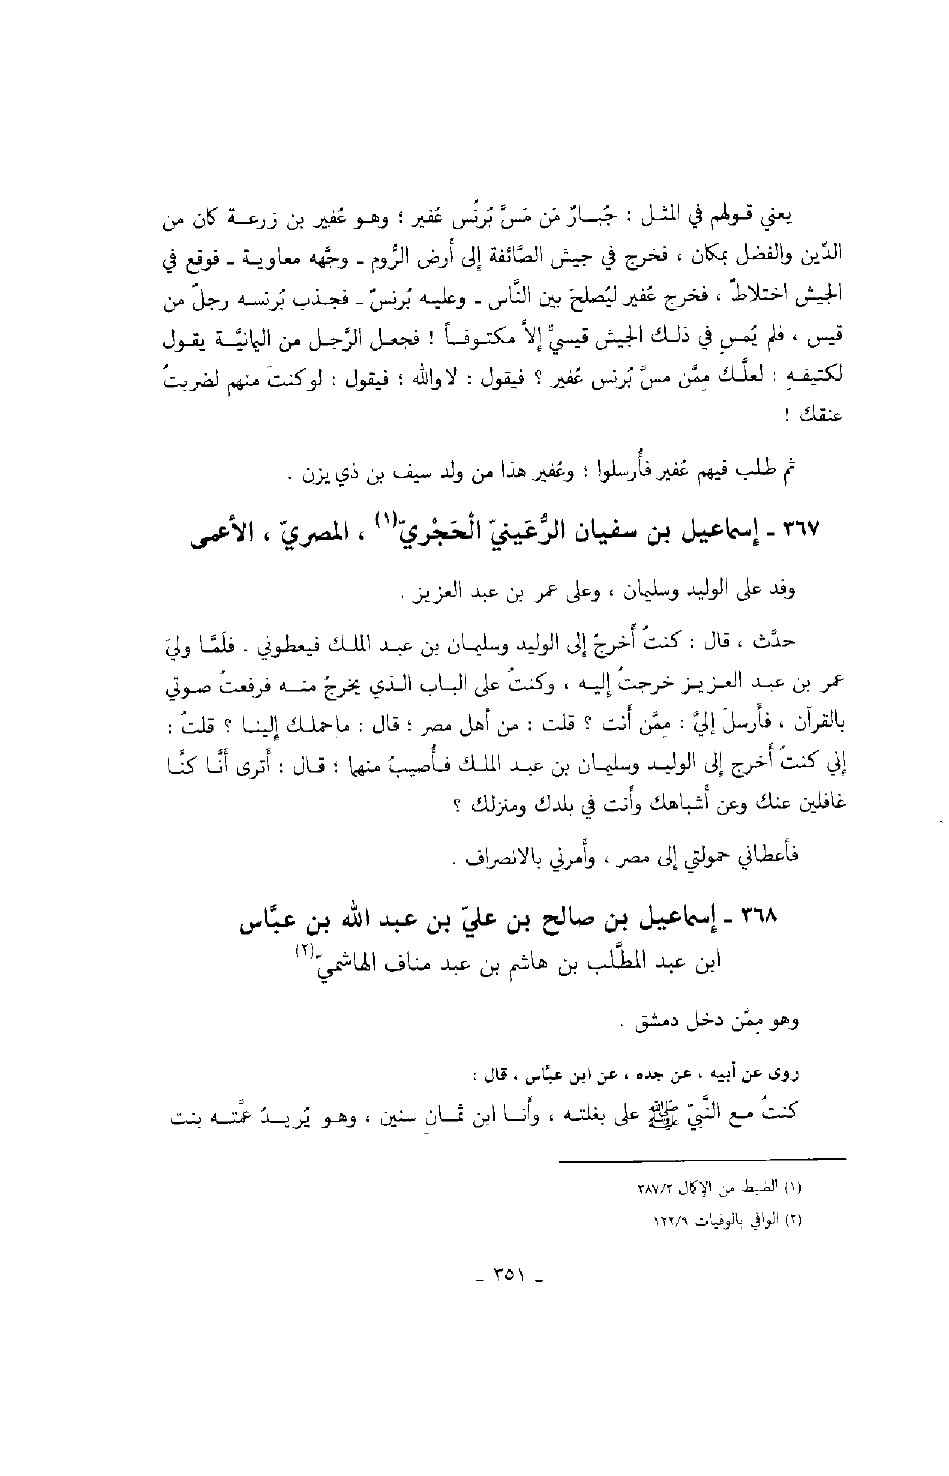 يعني قولهم في المثل : جُبارٌ مَن مَسَّ بُرنُس عُفير ؛ وهو عُفير بن زرعة كان من
الدّين والفضل بمكان ، فخرج في جيش الصَّائفة إلى أرض الرُّوم ـ وجَّهه معاوية ـ فوقع في
الجيش اختلاطٌ ، فخرج عُفير ليُصلحَ بين النَّاس ـ وعليه بُرنسٌ ـ فجذب بُرنسه رجلٌ من
قيس ، فلم يُمس في ذلك الجيش قيسيٌّ إلاَّ مكتوفاً ! فجعل الرَّجل من اليمانيَّة يقول
لكتيفه : لعلَّك ممَّن مسَّ بُرنس عُفير ؟ فيقول : لا والله ؛ فيقول : لو كنتَ منهم لضربتُ
عنقك !
ثم طلب فيهم عُفير فأُرسلوا ؛ وعُفير هذا من ولد سيف بن ذي يزن .
٣٦٧ ـ إسماعيل بن سفيان الرُّعَينيّ الْحَجْريّ(١) ، المصريّ ، الأعمى
وفد على الوليد وسليمان ، وعلى عمر بن عبد العزيز .
حدَّث ، قال : كنتُ أخرجُ إلى الوليد وسليمان بن عبد الملك فيعطوني . فلَمَّا وليَ
عمر بن عبد العزيز خرجتُ إليه ، وكنتُ على الباب الذي يخرجُ منه فرفعتُ صوتي
بالقرآن ، فأرسلَ إليَّ : ممَّن أنت ؟ قلت : من أهل مصر ؛ قال : ما حملك إلينا ؟ قلتُ :
إني كنتُ أخرج إلى الوليد وسليمان بن عبد الملك فأُصيبُ منها ؛ قال : أترى أنَّا كنَّا
غافلين عنك وعن أشباهك وأنت في بلدك ومنزلك ؟
فأعطاني حمولتي إلى مصر ، وأمرني بالانصراف .
٣٦٨ ـ إسماعيل بن صالح بن عليّ بن عبد الله بن عبَّاس
ابن عبد المطَّلب بن هاشم بن عبد مناف الهاشميّ(٢)
وهو ممَّن دخل دمشق .
روى عن أبيه ، عن جده ، عن ابن عبَّاس ، قال :
كنتُ مع النَّبيّ ﷺ على بغلته ، وأنا ابن ثمان سنين ، وهو يُريدُ عمَّته بنت
(١) الضبط من الإكمال ٣٨٧/٢
(٢) الوافي بالوفيات ١٢٢/٩
ـ ٣٥١ ـ